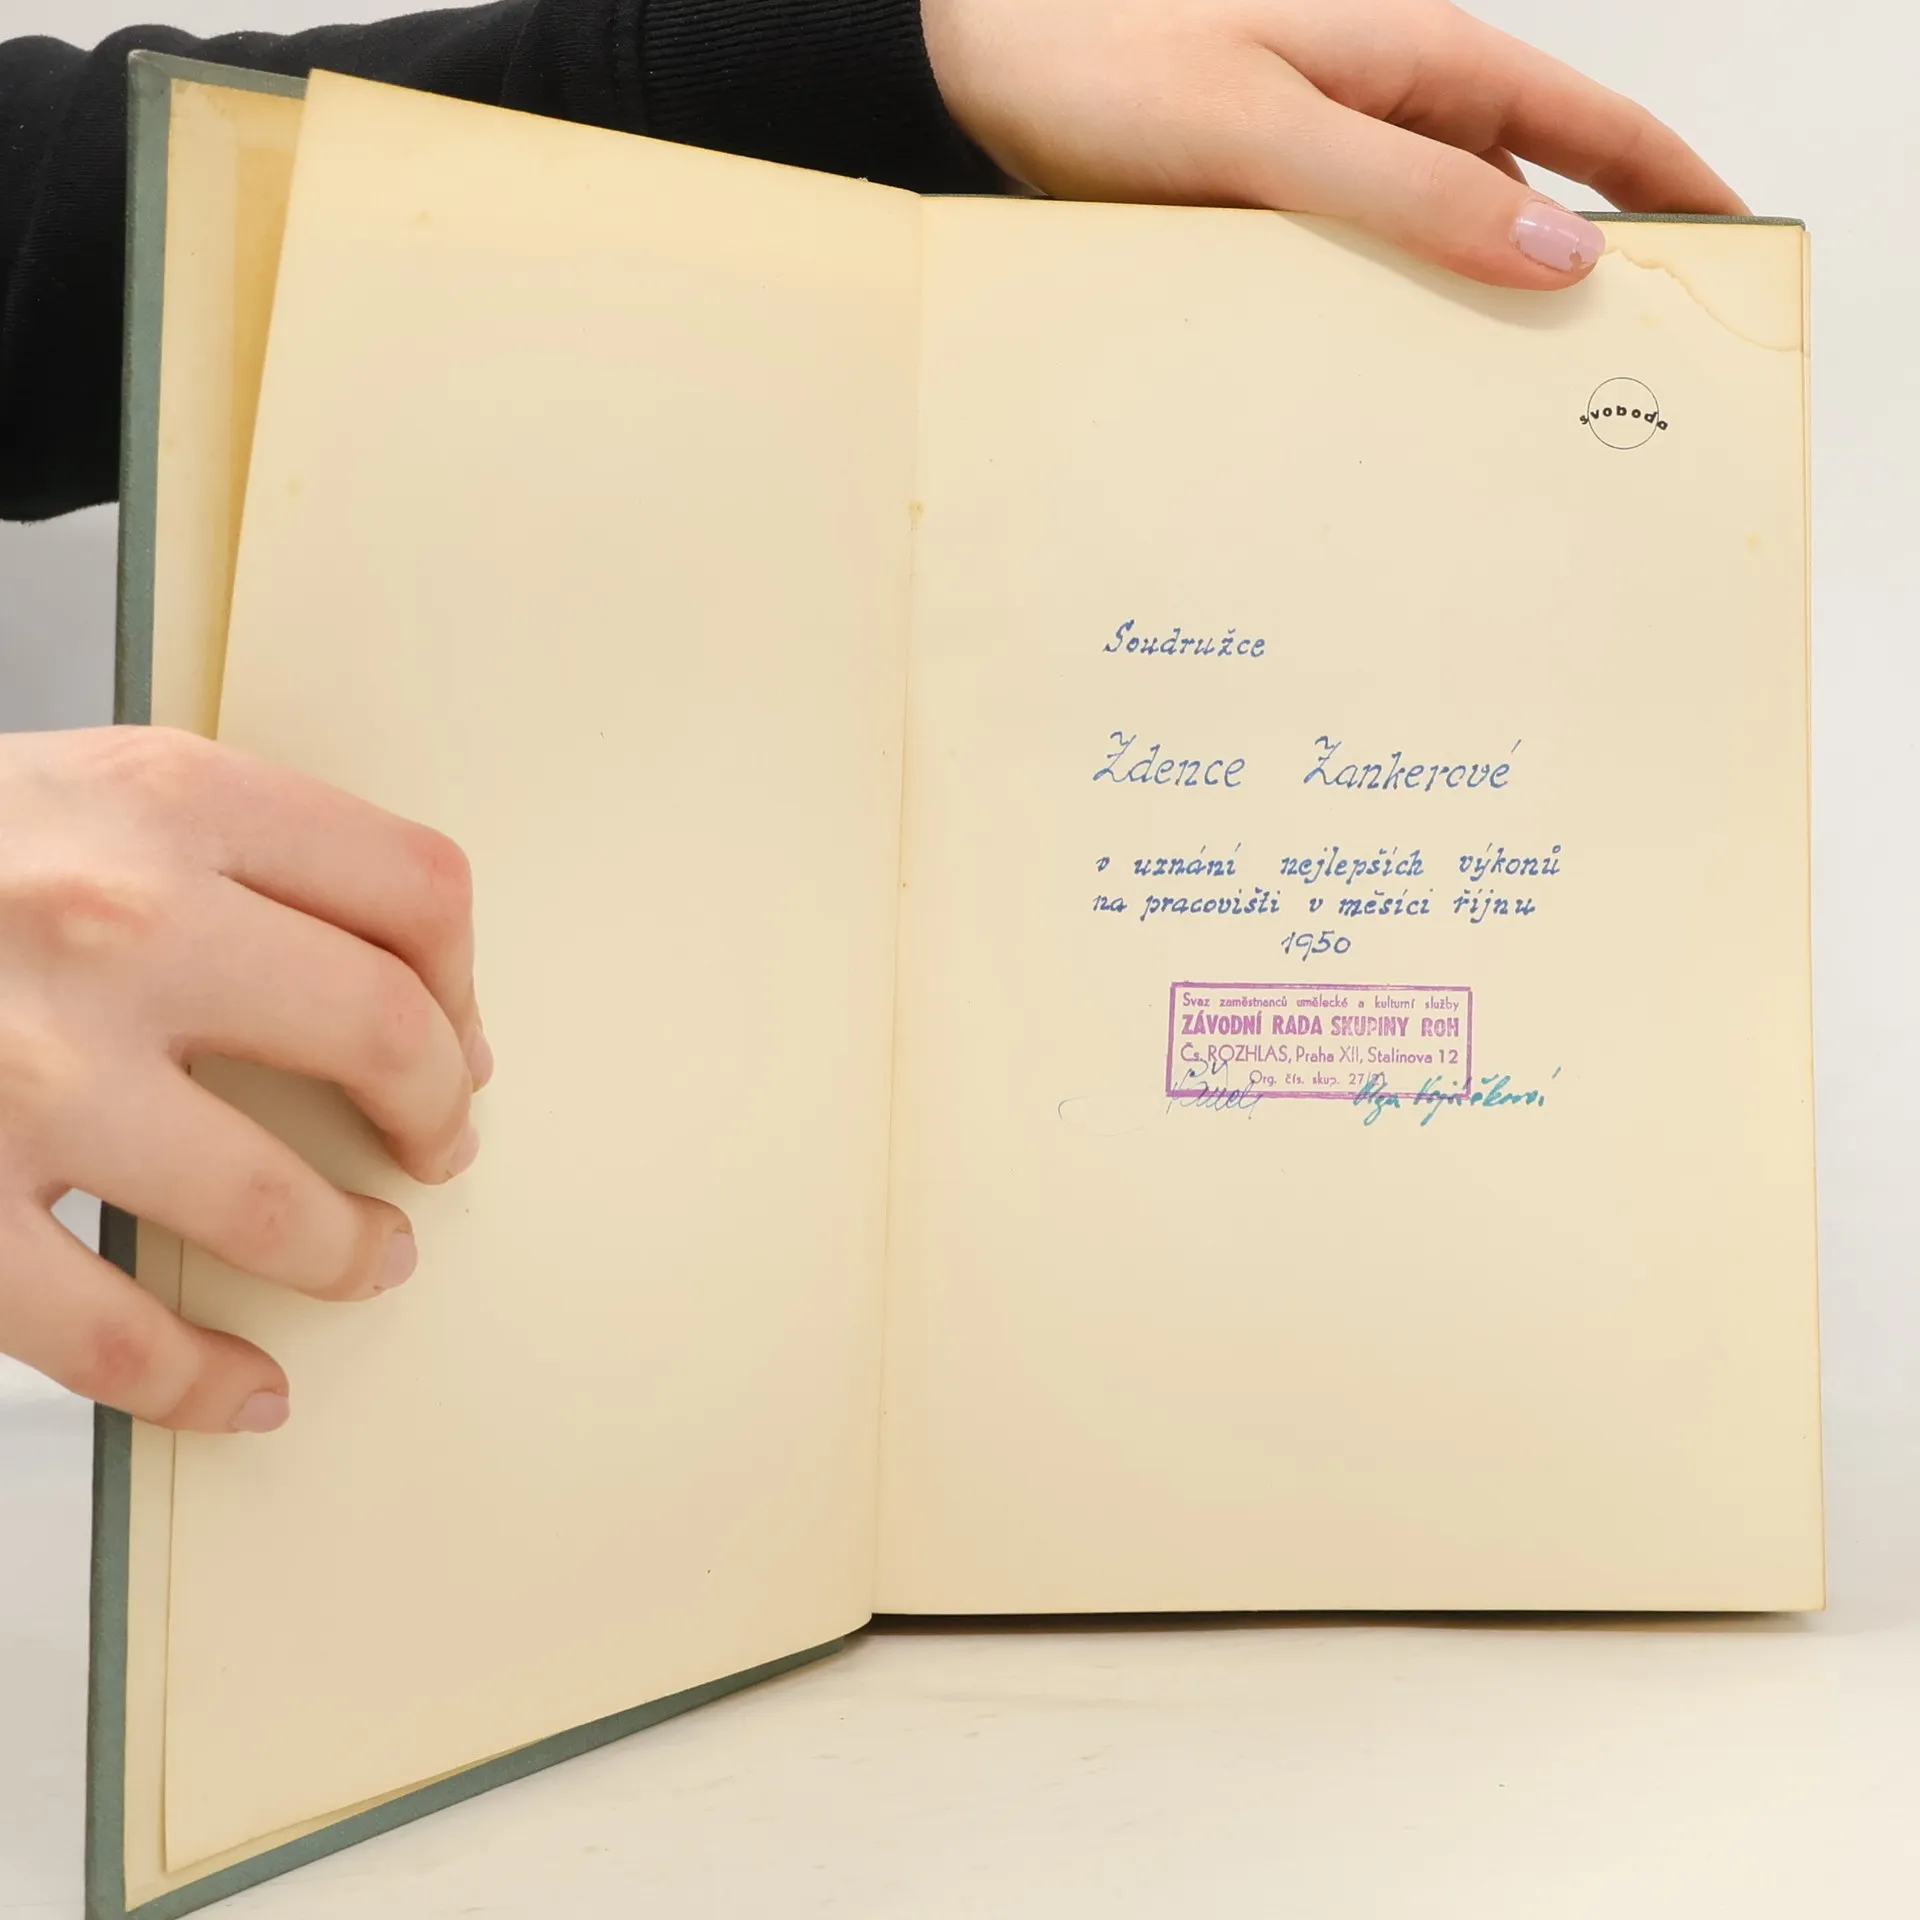 svoboda
Soudružce
Zdence Zankerové
v uznání nejlepších výkonů
na pracovišti v měsíci říjnu
1950
Svaz zaměstnanců umělecké a kulturní služby
ZÁVODNÍ RADA SKUPINY ROH
Čs. ROZHLAS, Praha XII, Stalinova 12
Org. čís. skup. 27/21
Olga